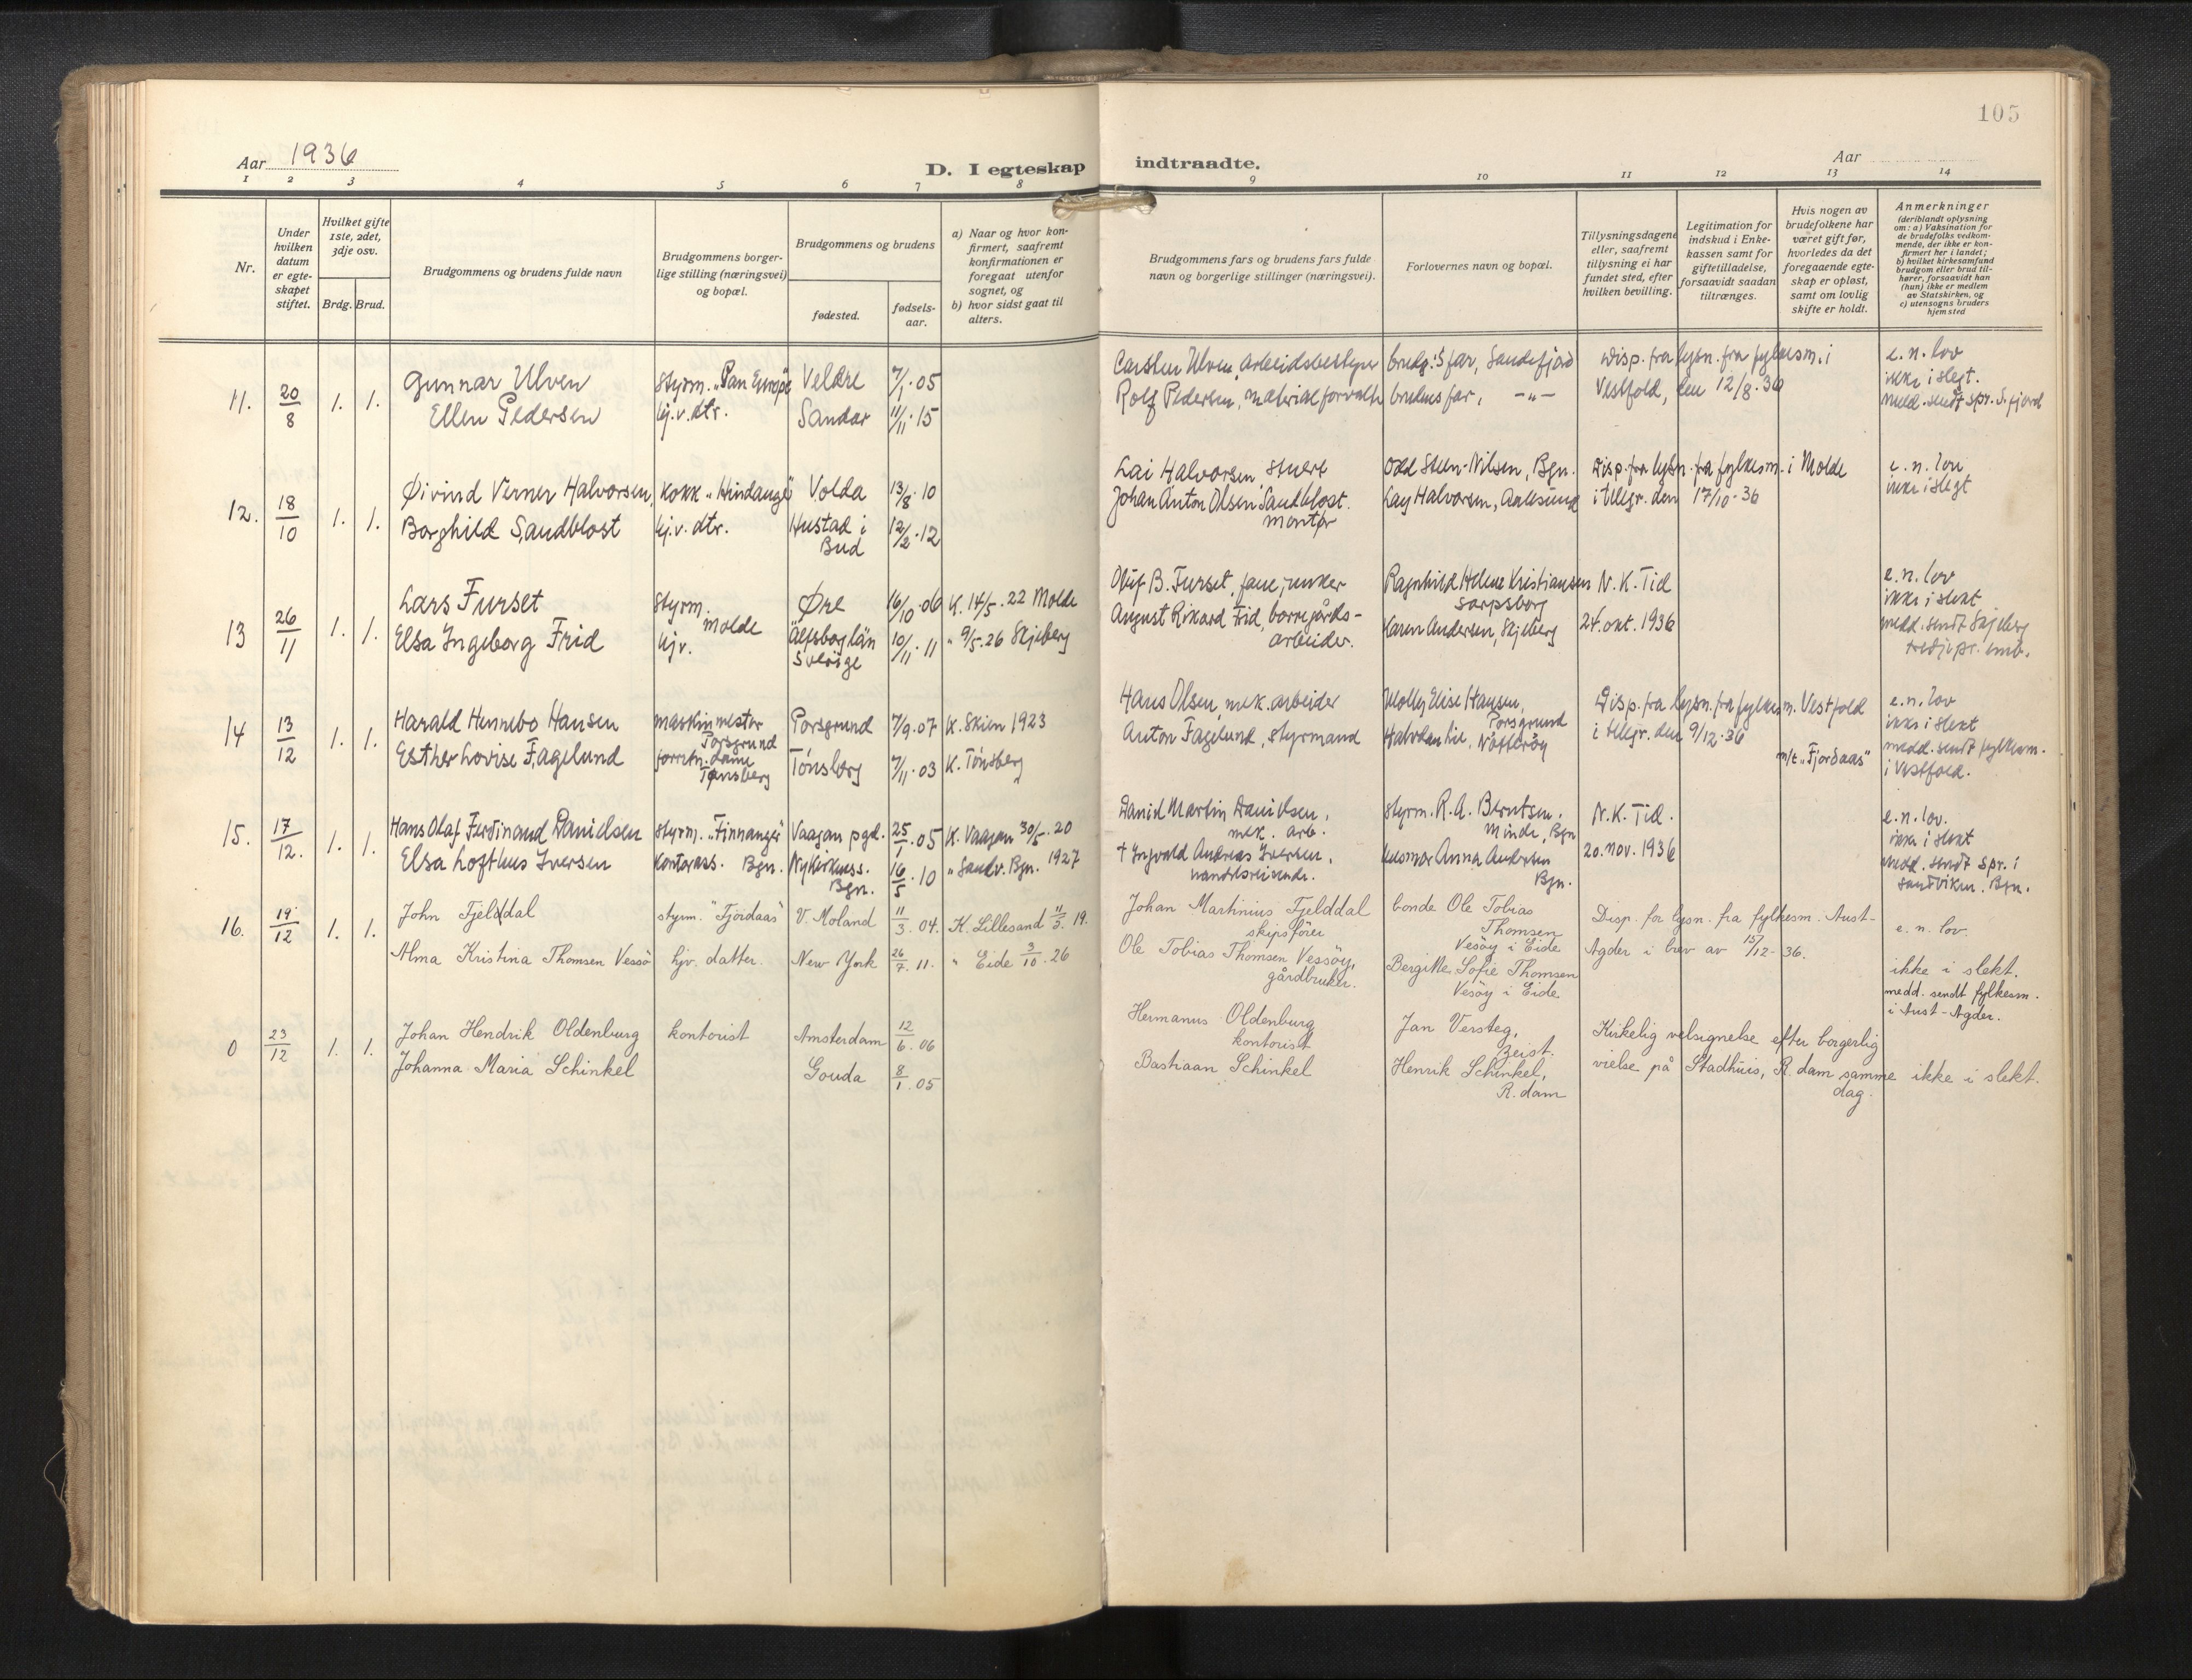 105
Aar 1936
D. I egteskap indtraadte.
Aar
1 2 3 4 5 6 7 8 9 10 11 12 13 14
Nr.
Under hvilken datum er egteskapet stiftet.
Hvilket gifte 1ste, 2det, 3dje osv.
Brdg. Brud.
Brudgommens og brudens fulde navn
Brudgommens borgerlige stilling (næringsvei) og bopæl.
Brudgommens og brudens
fødested.
fødselsaar.
a) Naar og hvor konfirmert, saafremt konfirmationen er foregaat utenfor sognet, og
b) hvor sidst gaat til alters.
Brudgommens fars og brudens fars fulde navn og borgerlige stillinger (næringsvei).
Forlovernes navn og bopæl.
Tillysningsdagene eller, saafremt tillysning ei har fundet sted, efter hvilken bevilling.
Legitimation for indskud i Enkekassen samt for giftetilladelse, forsaavidt saadan tiltrænges.
Hvis nogen av brudefolkene har været gift før, hvorledes da det foregaaende egteskap er opløst, samt om lovlig skifte er holdt.
Anmerkninger
(deriblandt oplysning om: a) Vaksination for de brudefolks vedkommende, der ikke er konfirmert her i landet;
b) hvilket kirkesamfund brudgom eller brud tilhører, forsaavidt han (hun) ikke er medlem av Statskirken, og
c) utensogns bruders hjemsted
11. 20/8 1. 1.
Gunnar Ulven
Ellen Pedersen
Styrm. „Pan Europe"
hj.v.dtr.
Veldre 7/1.05
Sandar 11/11.15
Carsten Ulven, arbeidsbestyrer
Rolf Pedersen, materialforvalter
brudg.s far, Sandefjord
brudens far, -"-
Disp. fra lysn. fra fylkesm. i
Vestfold, den 12/8.36
e. n. lov
ikke i slegt.
medd. sendt spr. S.fjord
12. 18/10 1. 1.
Øivind Verner Halvorsen,
Borghild Sandblost
Kokk „Hindanger"
hj.v. dtr.
Volda 13/8.10
Hustad i
Bud 12/2.12
Lai Halvorsen, stuert
Johan Anton Olsen Sandblost.
montør
Odd Steen-Nilsen, Bgn.
Lay Halvorsen, Aalesund
Disp. fra lysn. fra fylkesm. i Molde
i telegr. den 17/10-36
e. n. lov
ikke i slegt
13 26/11 1. 1.
Lars Furset
Elsa Ingeborg Frid
Styrm.
Molde
hj.
Øre 16/10.06
Älfsborg län
Sverige 10/11.11
K. 14/5.22 Molde
" 9/5.26 Skjeberg
Oluf B. Furset,
August Rikard Frid, borregårds-
arbeider.
Ragnhild Helene Kristiansen
Sarpsborg
Karen Andersen, Skjeberg
N. K. Tid
24. okt. 1936
e. n. lov
ikke i slekt
medd. sendt Skjeberg
14 13/12 1. 1.
Harald Hennebo Hansen
Esther Lovise Fagelund
maskinmester
Porsgrund
forretn.dame
Tønsberg
Porsgrund 7/9.07
Tønsberg 7/11.03
K. Skien 1923
K. Tønsberg
Hans Olsen, mek. arbeider
Anton Fagelund, styrmand
Molly Elise Hansen,
Porsgrund
Halvdan Lie, Nøtterøy
Disp. fra lysn. fra fylkesm. Vestfold
i telegr. den 9/12.36
m/t „Fjordaas"
e. n. lov
ikke i slekt
medd. sendt fylkesm.
i Vestfold.
15. 17/12. 1. 1.
Hans Olaf Ferdinand Danielsen
Elsa Lofthus Iversen
Styrm. „Finnanger"
Kontorass. Bgn.
Vaagan pgd. 25/1.05
Nykirkens s.
Bgn. 16/5.10
K. Vaagan 30/5.20
" Sandv. Bgn. 1927
Daniel Martin Danielsen,
mek. arb.
† Ingvald Andreas Iversen,
handelsreisende.
Styrm. R. A. Berntsen,
Minde, Bgn
Anna Andersen
Bgn.
N. K. Tid.
20. nov. 1936
e. n. lov.
ikke i slekt
medd. sendt spr. i
Sandviken. Bgn.
16. 19/12 1. 1.
John Fjelddal
Alma Kristina Thomsen Vessö
styrm. "Fjordaas"
hjv. datter.
V. Moland 11/3.04.
New York 26/7.11.
K. Lillesand 11/5.19.
" Eide 3/10.26
Johan Martinius Fjelddal
skipsfører
Ole Tobias Thomsen Vessöy,
gårdbruker.
bonde Ole Tobias
Thomsen
Vesöy i Eide
Bergitte Sofie Thomsen
Vesöy i Eide
Disp. for lysn. fra fylkesm. Aust-
Agder i brev av 15/12-36.
e. n. lov.
ikke i slekt.
medd. sendt fylkesm.
i Aust-Agder.
0 23/12 1. 1.
Johan Hendrik Oldenburg
Johanna Maria Schinkel
kontorist
Amsterdam 12/6.06
Gouda 8/1.05
Hermanus Oldenburg
kontorist
Bastiaan Schinkel
Jan Versteg,
Zeist.
Henrik Schinkel,
R.dam
Kirkelig velsignelse efter borgerlig
vielse på Stadhuis, R.dam samme
dag.
ikke i slekt.